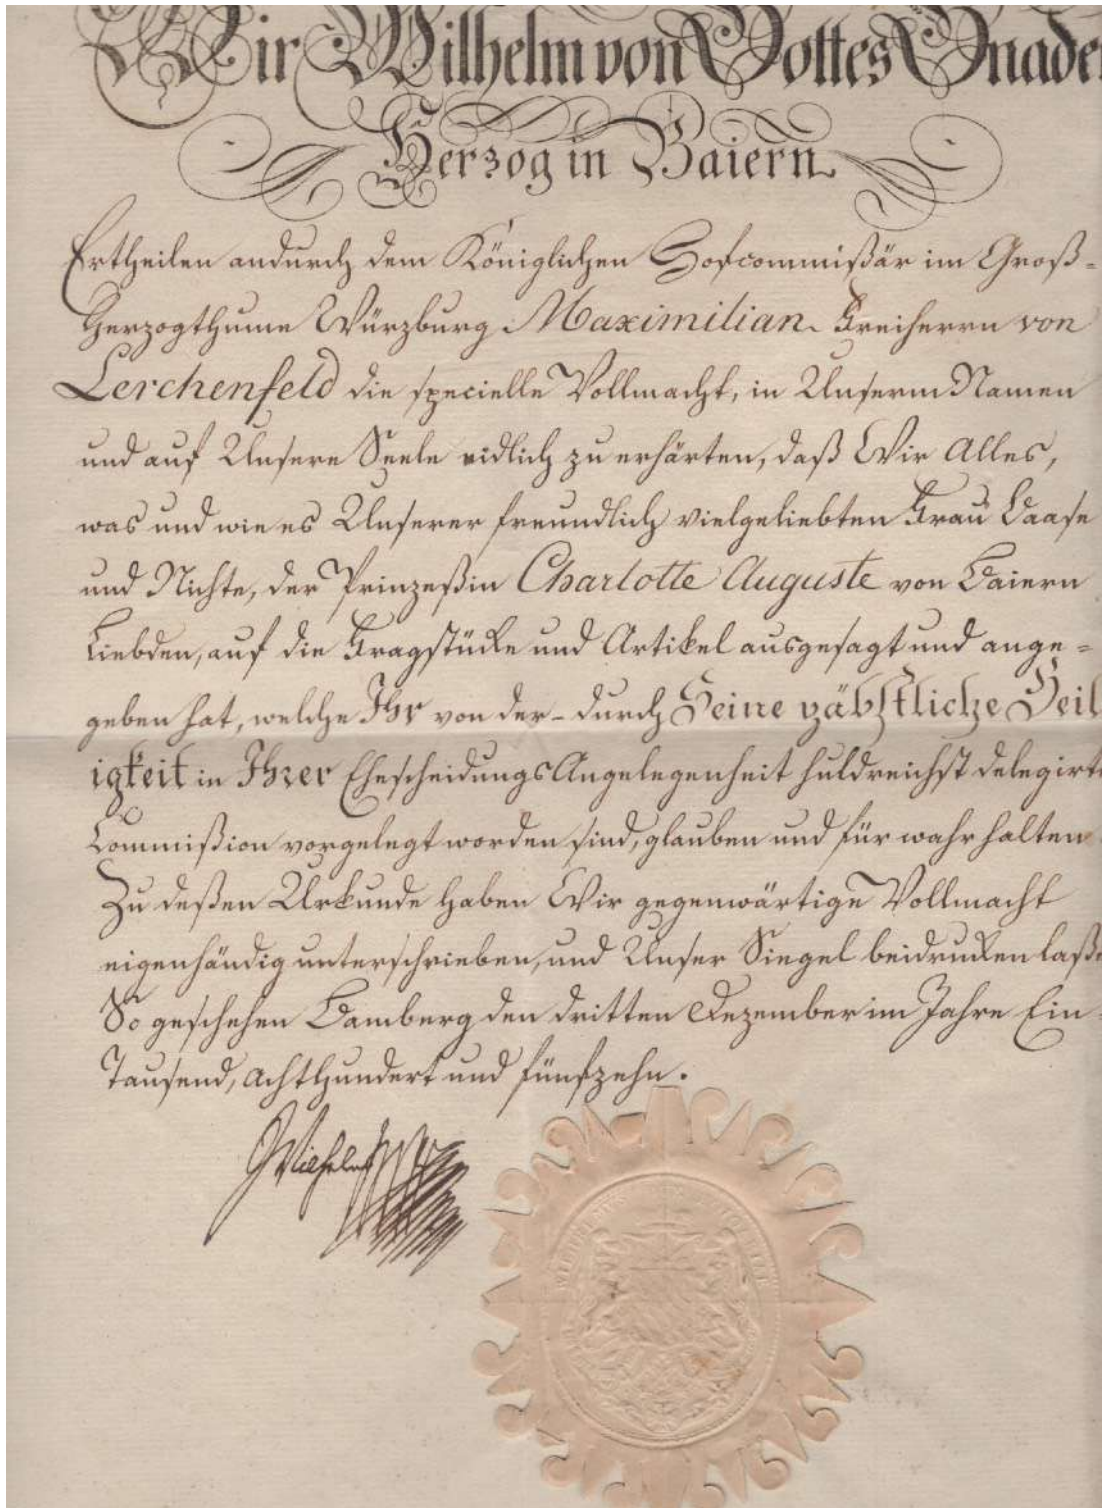 Wir Wilhelm von Gottes Gnaden
Herzog in Baiern
Ertheilen andurch dem Königlichen Hofcommißär im Groß-
Herzogthume Würzburg Maximilian Freiherrn von
Lerchenfeld die specielle Vollmacht, in Unserm Namen
und auf Unsere Seele eidlich zu erhärten, daß Wir Alles,
was und wie es Unserer freundlich vielgeliebten Frau Baase
und Nichte, der Prinzeßin Charlotte Auguste von Baiern
Liebden, auf die Fragstücke und Artikel ausgesagt und ange-
geben hat, welche Ihr von der- durch Seine päbstliche Heil
igkeit in Ihrer Ehescheidungs Angelegenheit huldreichst delegirte
Commißion vorgelegt worden sind, glauben und für wahr halten
Zu deßen Urkunde haben Wir gegenwärtige Vollmacht
eigenhändig unterschrieben, und Unser Siegel beidrucken laße
So geschehen Bamberg den dritten Dezember im Jahre Ein
Tausend, achthundert und fünfzehn.
Wilhelm